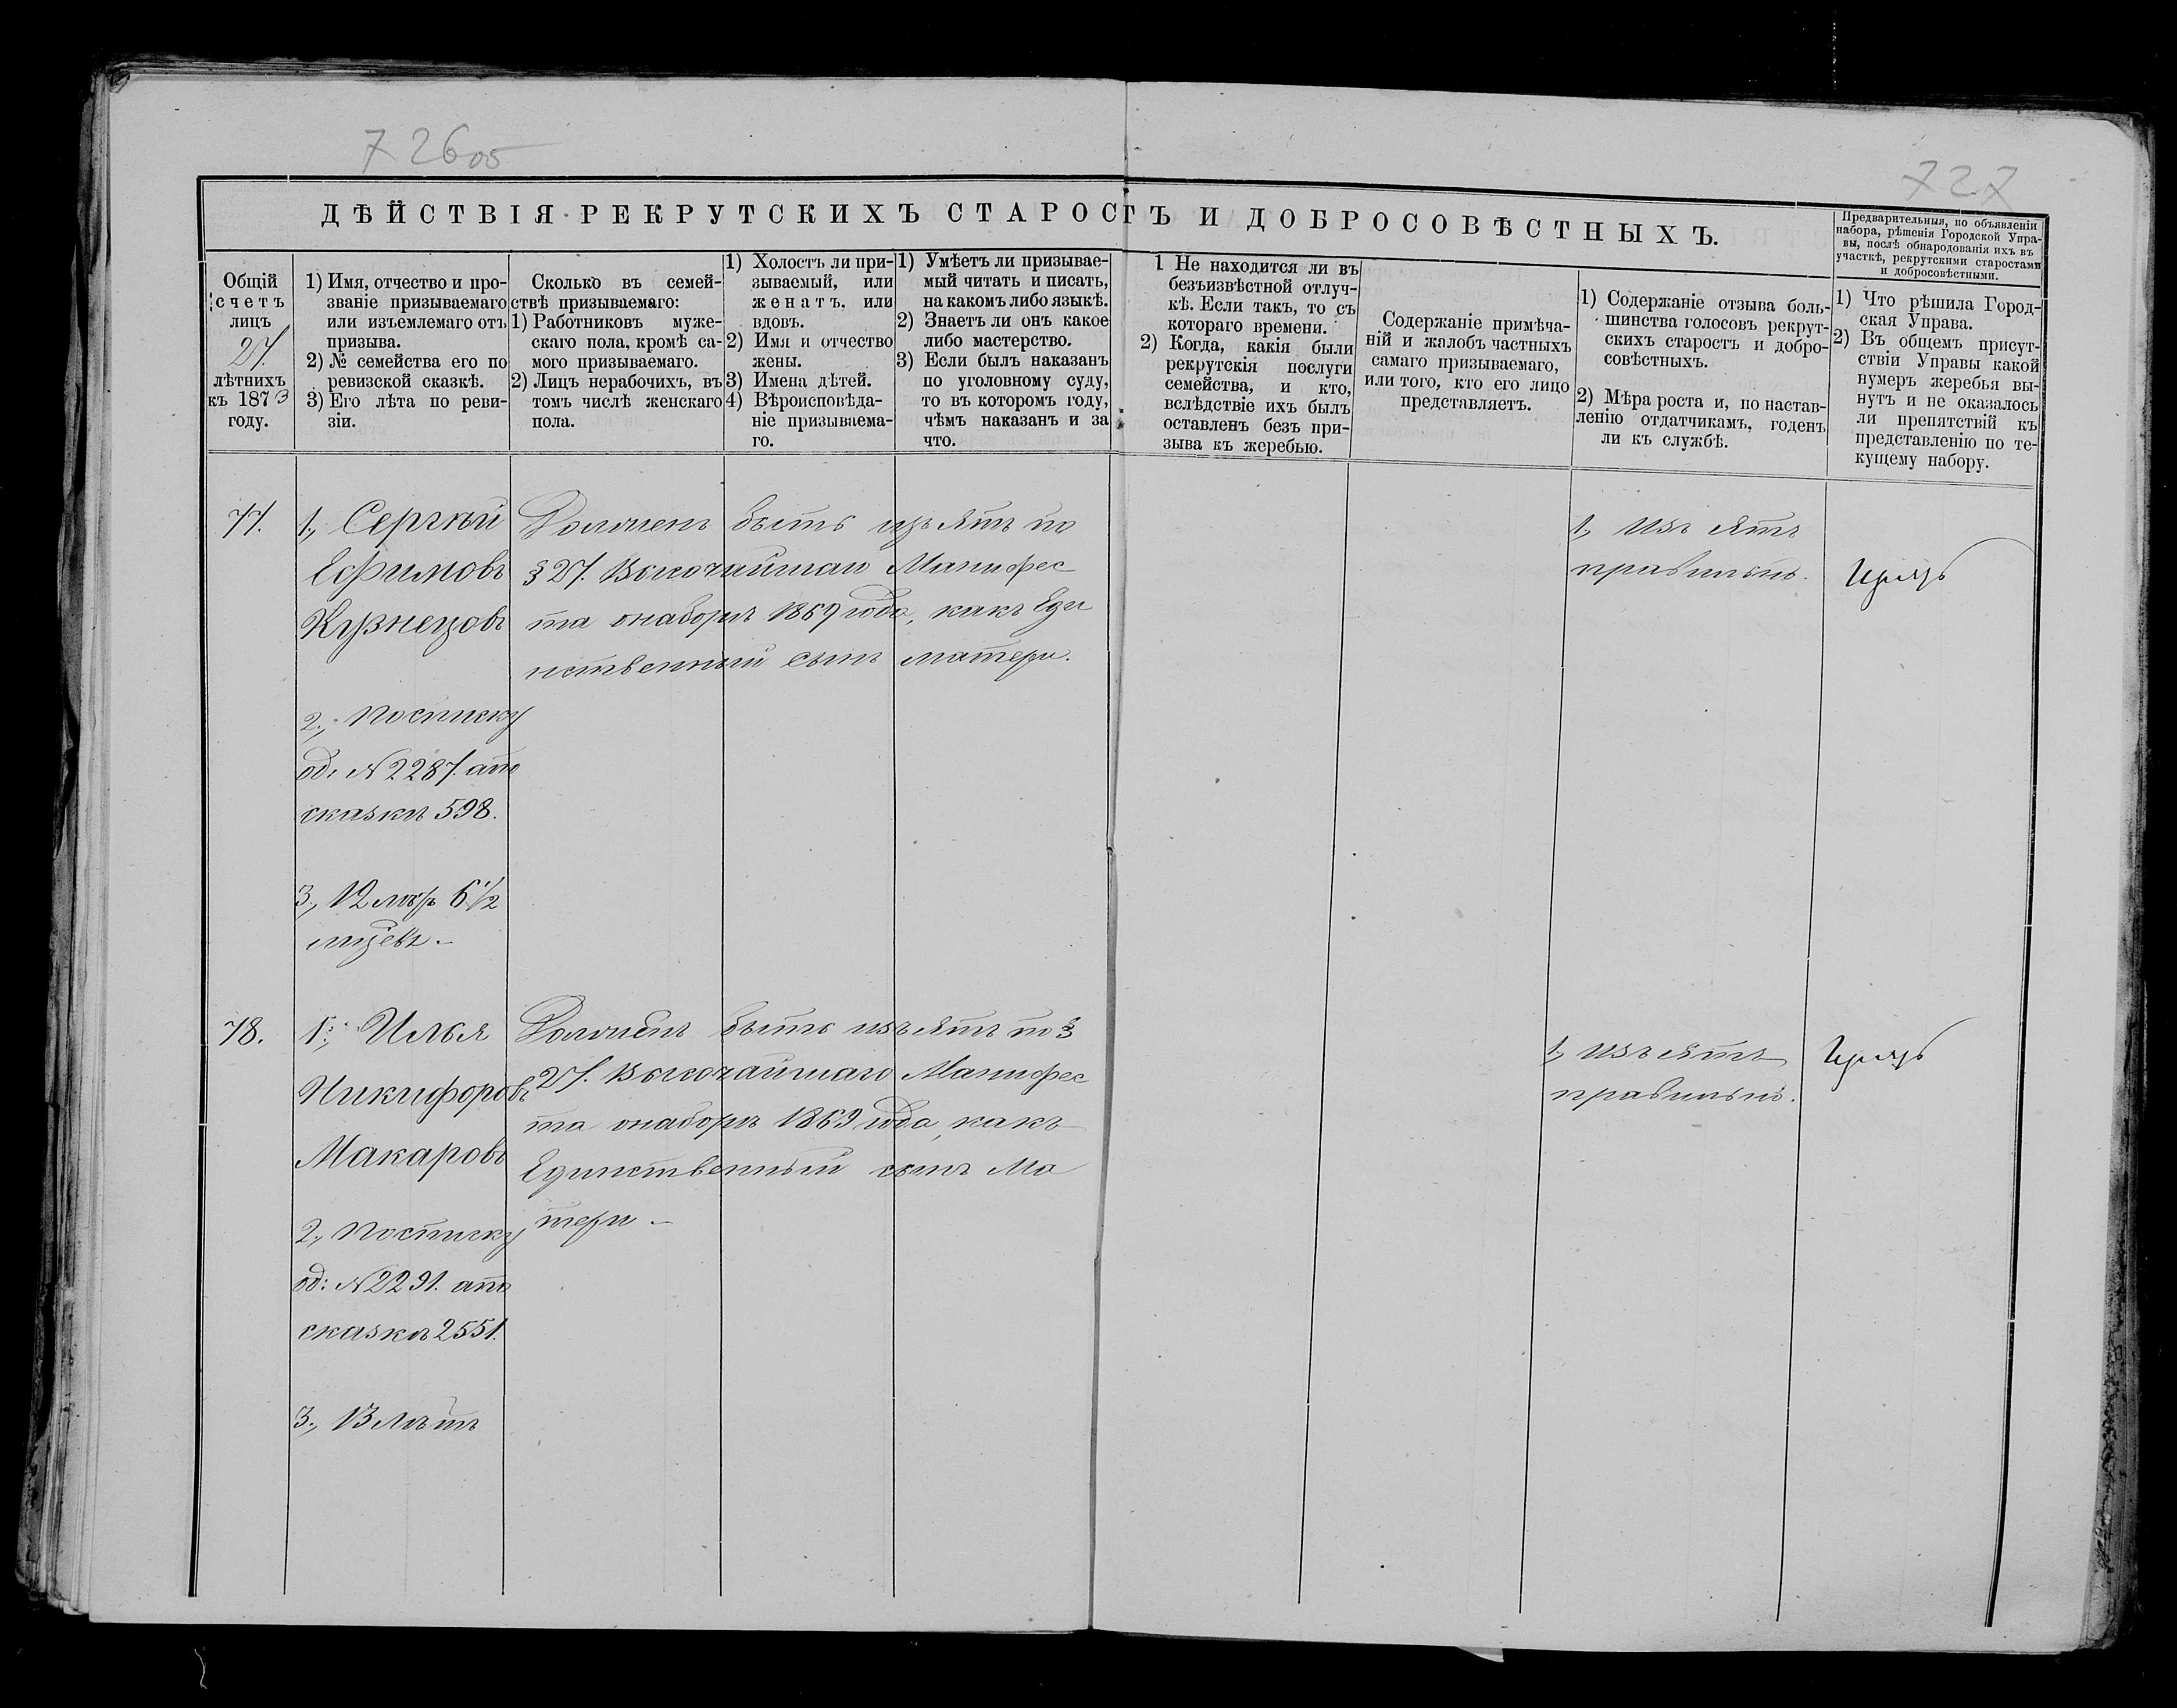 726 об
727
ДѢЙСТВІЯ РЕКРУТСКИХЪ СТАРОСТЪ И ДОБРОСОВѢСТНЫХЪ.
Предварительныя, по объявленіи
набора, рѣшенія Городской Упра-
вы, послѣ обнародованія ихъ въ
участкѣ, рекрутскими старостами
и добросовѣстными.
Общій
счетъ
лицъ
27.
лѣтнихъ
къ 1873
году.
1) Имя, отчество и про-
званіе призываемаго
или изъемлемаго отъ
призыва.
2) № семейства его по
ревизской сказкѣ.
3) Его лѣта по реви-
зіи.
Сколько въ семей-
ствѣ призываемаго:
1) Работниковъ муже-
скаго пола, кромѣ са-
мого призываемаго.
2) Лицъ нерабочихъ, въ
томъ числѣ женскаго
пола.
1) Холостъ ли при-
зываемый, или
женатъ, или
вдовъ.
2) Имя и отчество
жены.
3) Имена дѣтей.
4) Вѣроисповѣда-
ніе призываема-
го.
1) Умѣетъ ли призывае-
мый читать и писать,
на какомъ либо языкѣ.
2) Знаетъ ли онъ какое
либо мастерство.
3) Если былъ наказанъ
по уголовному суду,
то въ которомъ году,
чѣмъ наказанъ и за
что.
1 Не находится ли въ
безъизвѣстной отлуч-
кѣ. Если такъ, то съ
котораго времени.
2) Когда, какія были
рекрутскія послуги
семейства, и кто,
вслѣдствіе ихъ былъ
оставленъ безъ при-
зыва къ жеребью.
Содержаніе примѣча-
ній и жалобъ частныхъ
самаго призываемаго,
или того, кто его лицо
представляетъ.
1) Содержаніе отзыва боль-
шинства голосовъ рекрут-
скихъ старостъ и добро-
совѣстныхъ.
2) Мѣра роста и, по настав-
ленію отдатчикамъ, годенъ
ли къ службѣ.
1) Что рѣшила Город-
ская Управа.
2) Въ общемъ присут-
ствіи Управы какой
нумеръ жеребья вы-
нутъ и не оказалось
ли препятствій къ
представленію по те-
кущему набору.
77.
1., Сергѣй
Ефимовъ
Кузнецовъ
2., Посписку
од: № 2287. апо
сказкѣ 598.
3., 12 лѣтъ 6 1/2
мцевъ.
Долженъ быть изъятъ по
§ 27. Высочайшаи Манифес
та онаборѣ 1869 года, какъ Еди
нственный сынъ матери.
1., Изъятъ
правильно.
78.
1., Илья
Никифоровъ
Макаровъ
2., Посписку
од: № 2291. апо
сказкѣ 2551.
3., 13 лѣтъ
Долженъ быть изъятъ по §
27. Высочайшаго Манифес
та онаборѣ 1869 года, какъ
Единственный сынъ Ма
тери.
1., Изъятъ
правильно.